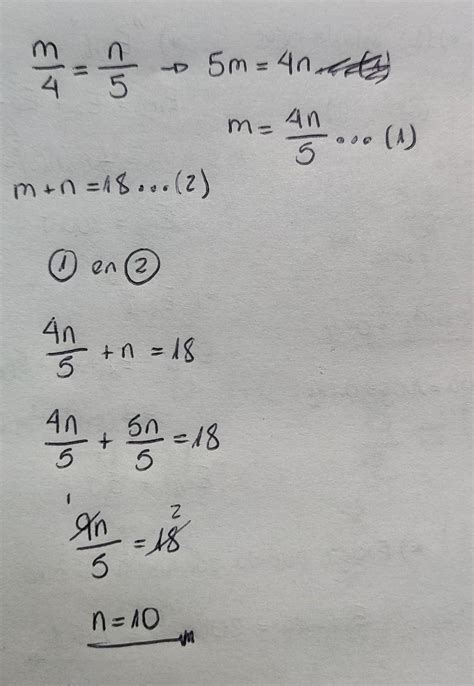 m/4 = n/5 → 5m = 4n
m = 4n/5 ... (1)
m + n = 18 ... (2)
① en ②
4n/5 + n = 18
4n/5 + 5n/5 = 18
1 9n/5 = 18 2
n = 10